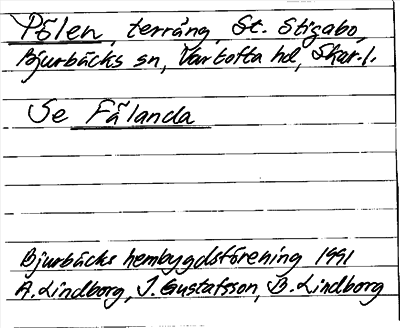 Pölen, terräng, St. Stigabo,
Bjurbäcks sn, Vartofta hd, Skar.l.
Se Fålanda
Bjurbäcks hembygdsförening 1991
A. Lindborg, J. Gustafsson, B. Lindborg